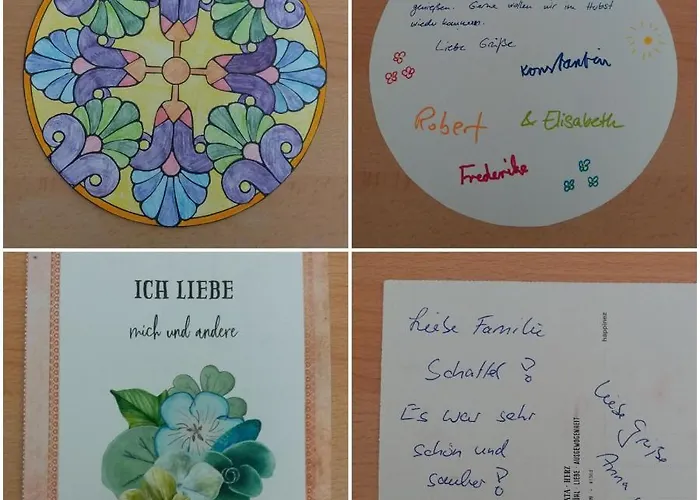 genießen. Gerne wollen wir im Herbst
wieder kommen.
Liebe Grüße
Konstantin
Robert
& Elisabeth
Frederike
ICH LIEBE
mich und andere
Liebe Familie
Schattel!
Es war sehr
schön und
sauber!
happinez
HERZ
LIEBE AUSGEWOGENHEIT
Liebe Grüße
Anna